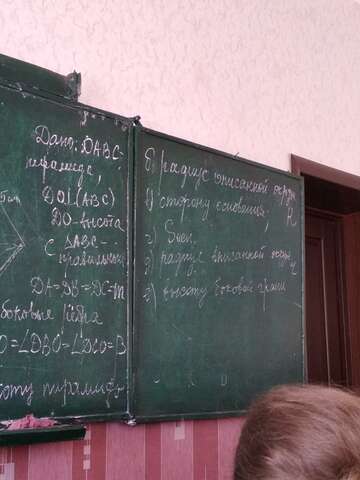 Дано: DABC-
пирамида,
DO⊥(ABC)
DO-высота
△ABC-
правильный
DA=DB=DC=m
боковые рёбра
O=∠DBO=∠DCO=β
оту пирамиды
б) радиус описанной окруж
R
в) сторону основания,
г) Sосн.
д) радиус вписанной
r
е) высоту боковой грани